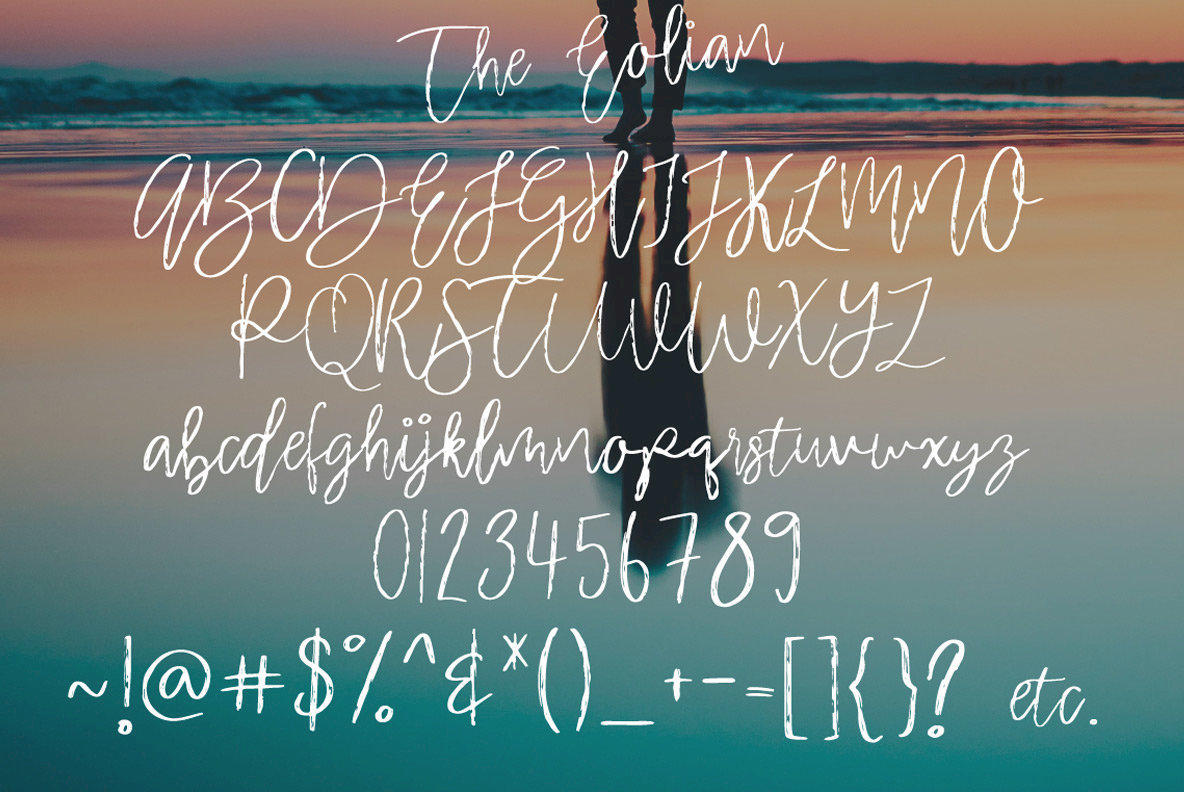 The Eolian
ABCDEFGHIJKLMNO
PQRSTUVWXYZ
abcdefghijklmnopqrstuvwxyz
0123456789
~!@#$%^&*()_+-=[]{}? etc.